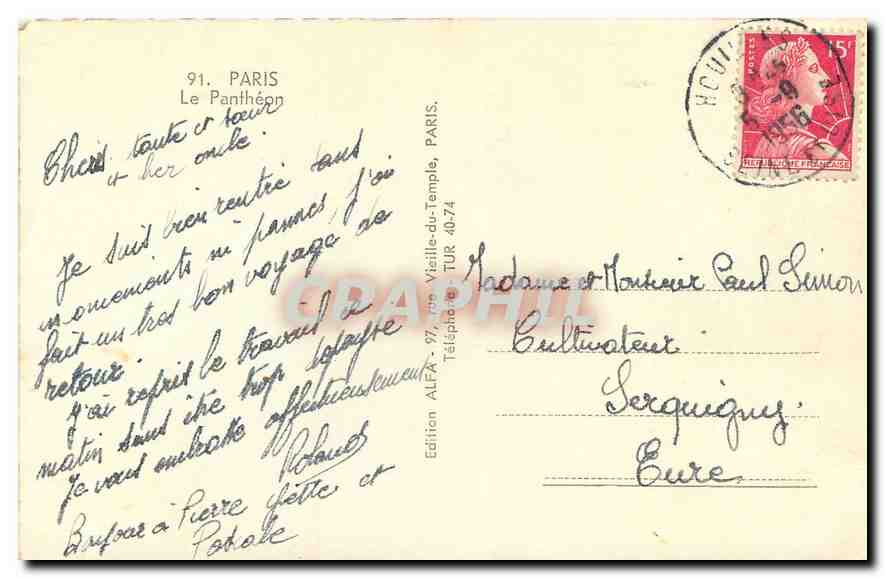 91. PARIS
Le Panthéon
Chers tante et sœur
et cher oncle.
Je suis bien rentré sans
ni pannes j'ai
fait un tres bon voyage de
retour.
J'ai repris le travail ce
matin sans être trop
Je vous embrasse affectueusement
Roland
Bonjour à Pierre et
Edition ALFA - 97, rue Vieille-du-Temple, PARIS.
Téléphone TUR 40-74
CPAPHIL
POSTES
15F
REPUBLIQUE FRANÇAISE
5 -9
1956
Madame et Monsieur Paul Simon
Cultivateur
Serquigny
Eure